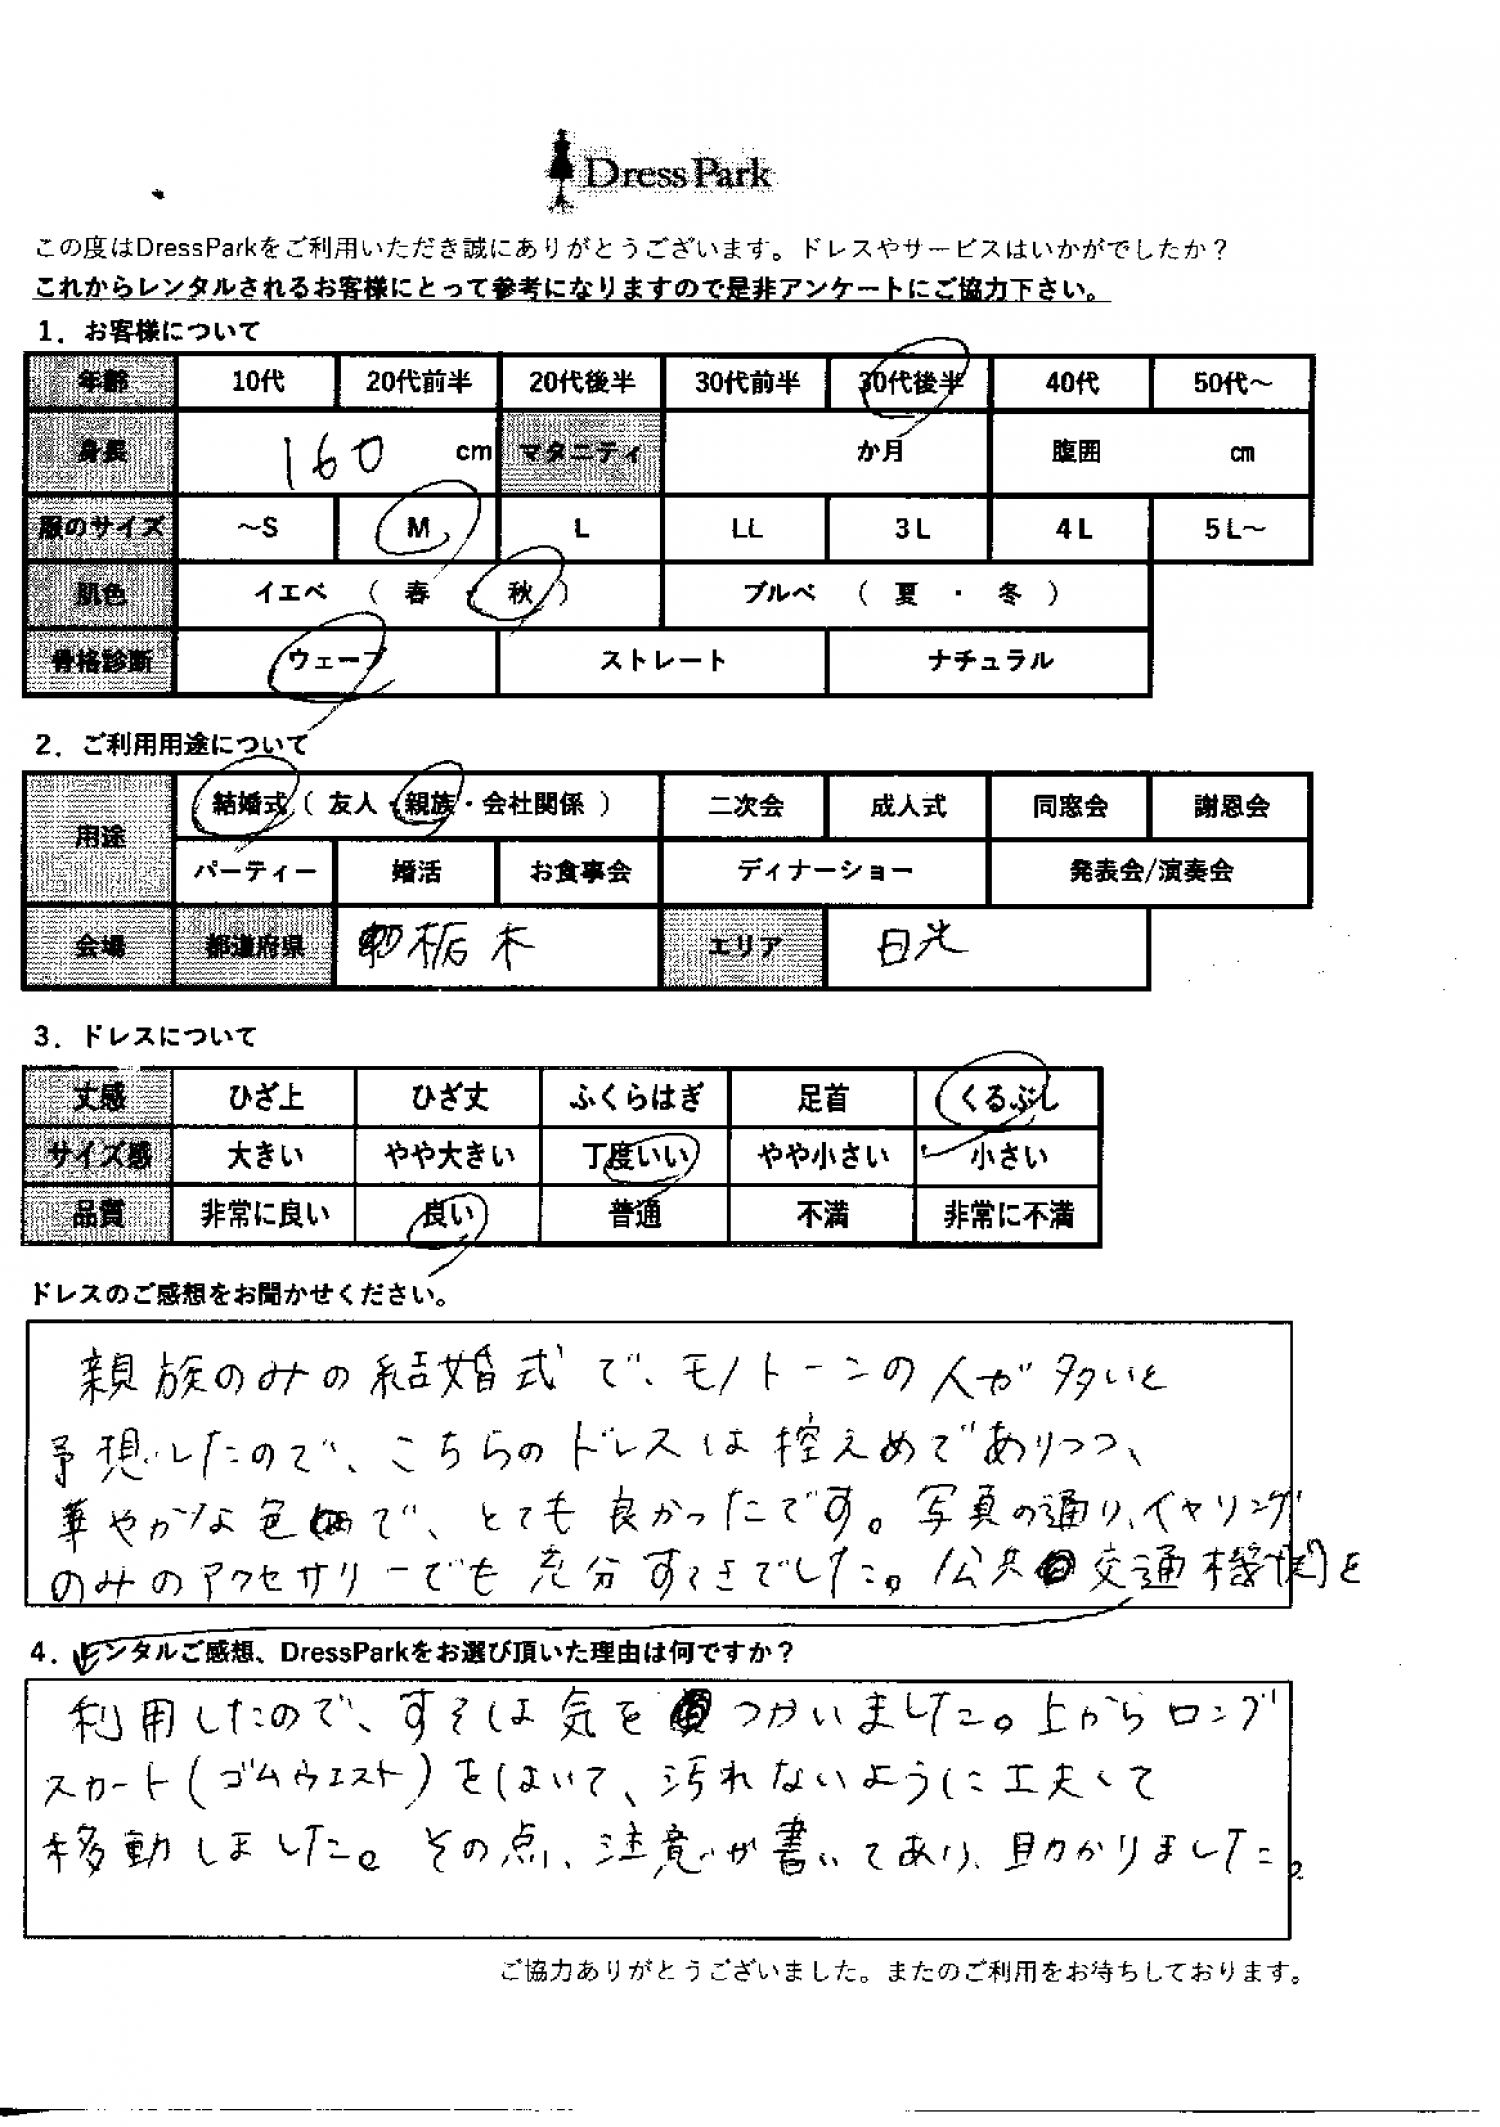 Dress Park
この度はDressParkをご利用いただき誠にありがとうございます。ドレスやサービスはいかがでしたか？
これからレンタルされるお客様にとって参考になりますので是非アンケートにご協力下さい。
1．お客様について
年齢 10代 20代前半 20代後半 30代前半 30代後半 40代 50代～
身長 160 cm マタニティ か月 腹囲 cm
服のサイズ ～S M L LL 3L 4L 5L～
肌色 イエベ （ 春 ・ 秋 ） ブルベ （ 夏 ・ 冬 ）
骨格診断 ウェーブ ストレート ナチュラル
2．ご利用用途について
用途 結婚式（ 友人・親族・会社関係 ） 二次会 成人式 同窓会 謝恩会
パーティー 婚活 お食事会 ディナーショー 発表会/演奏会
会場 都道府県 栃木 エリア 日光
3．ドレスについて
丈感 ひざ上 ひざ丈 ふくらはぎ 足首 くるぶし
サイズ感 大きい やや大きい 丁度いい やや小さい 小さい
品質 非常に良い 良い 普通 不満 非常に不満
ドレスのご感想をお聞かせください。
親族のみの結婚式で、モノトーンの人が多いと
予想したので、こちらのドレスは控えめでありつつ、
華やかな色で、とても良かったです。写真の通り、イヤリング
のみのアクセサリーでも充分すてきでした。公共交通機関を
4．レンタルご感想、DressParkをお選び頂いた理由は何ですか？
利用したので、すそは気をつかいました。上からロング
スカート(ゴムウエスト)をはいて、汚れないように工夫して
移動しました。その点、注意が書いてあり、助かりました。
ご協力ありがとうございました。またのご利用をお待ちしております。